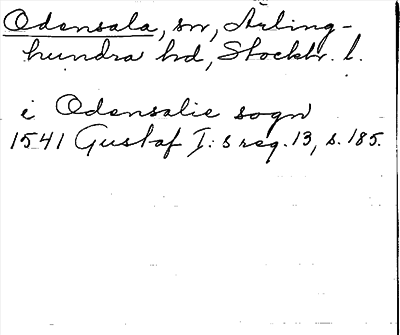 Odensala, sn, Ärling-
hundra hd, Stockh. l.
i Odensalie sogn
1541 Gustaf I: s reg. 13, s. 185.